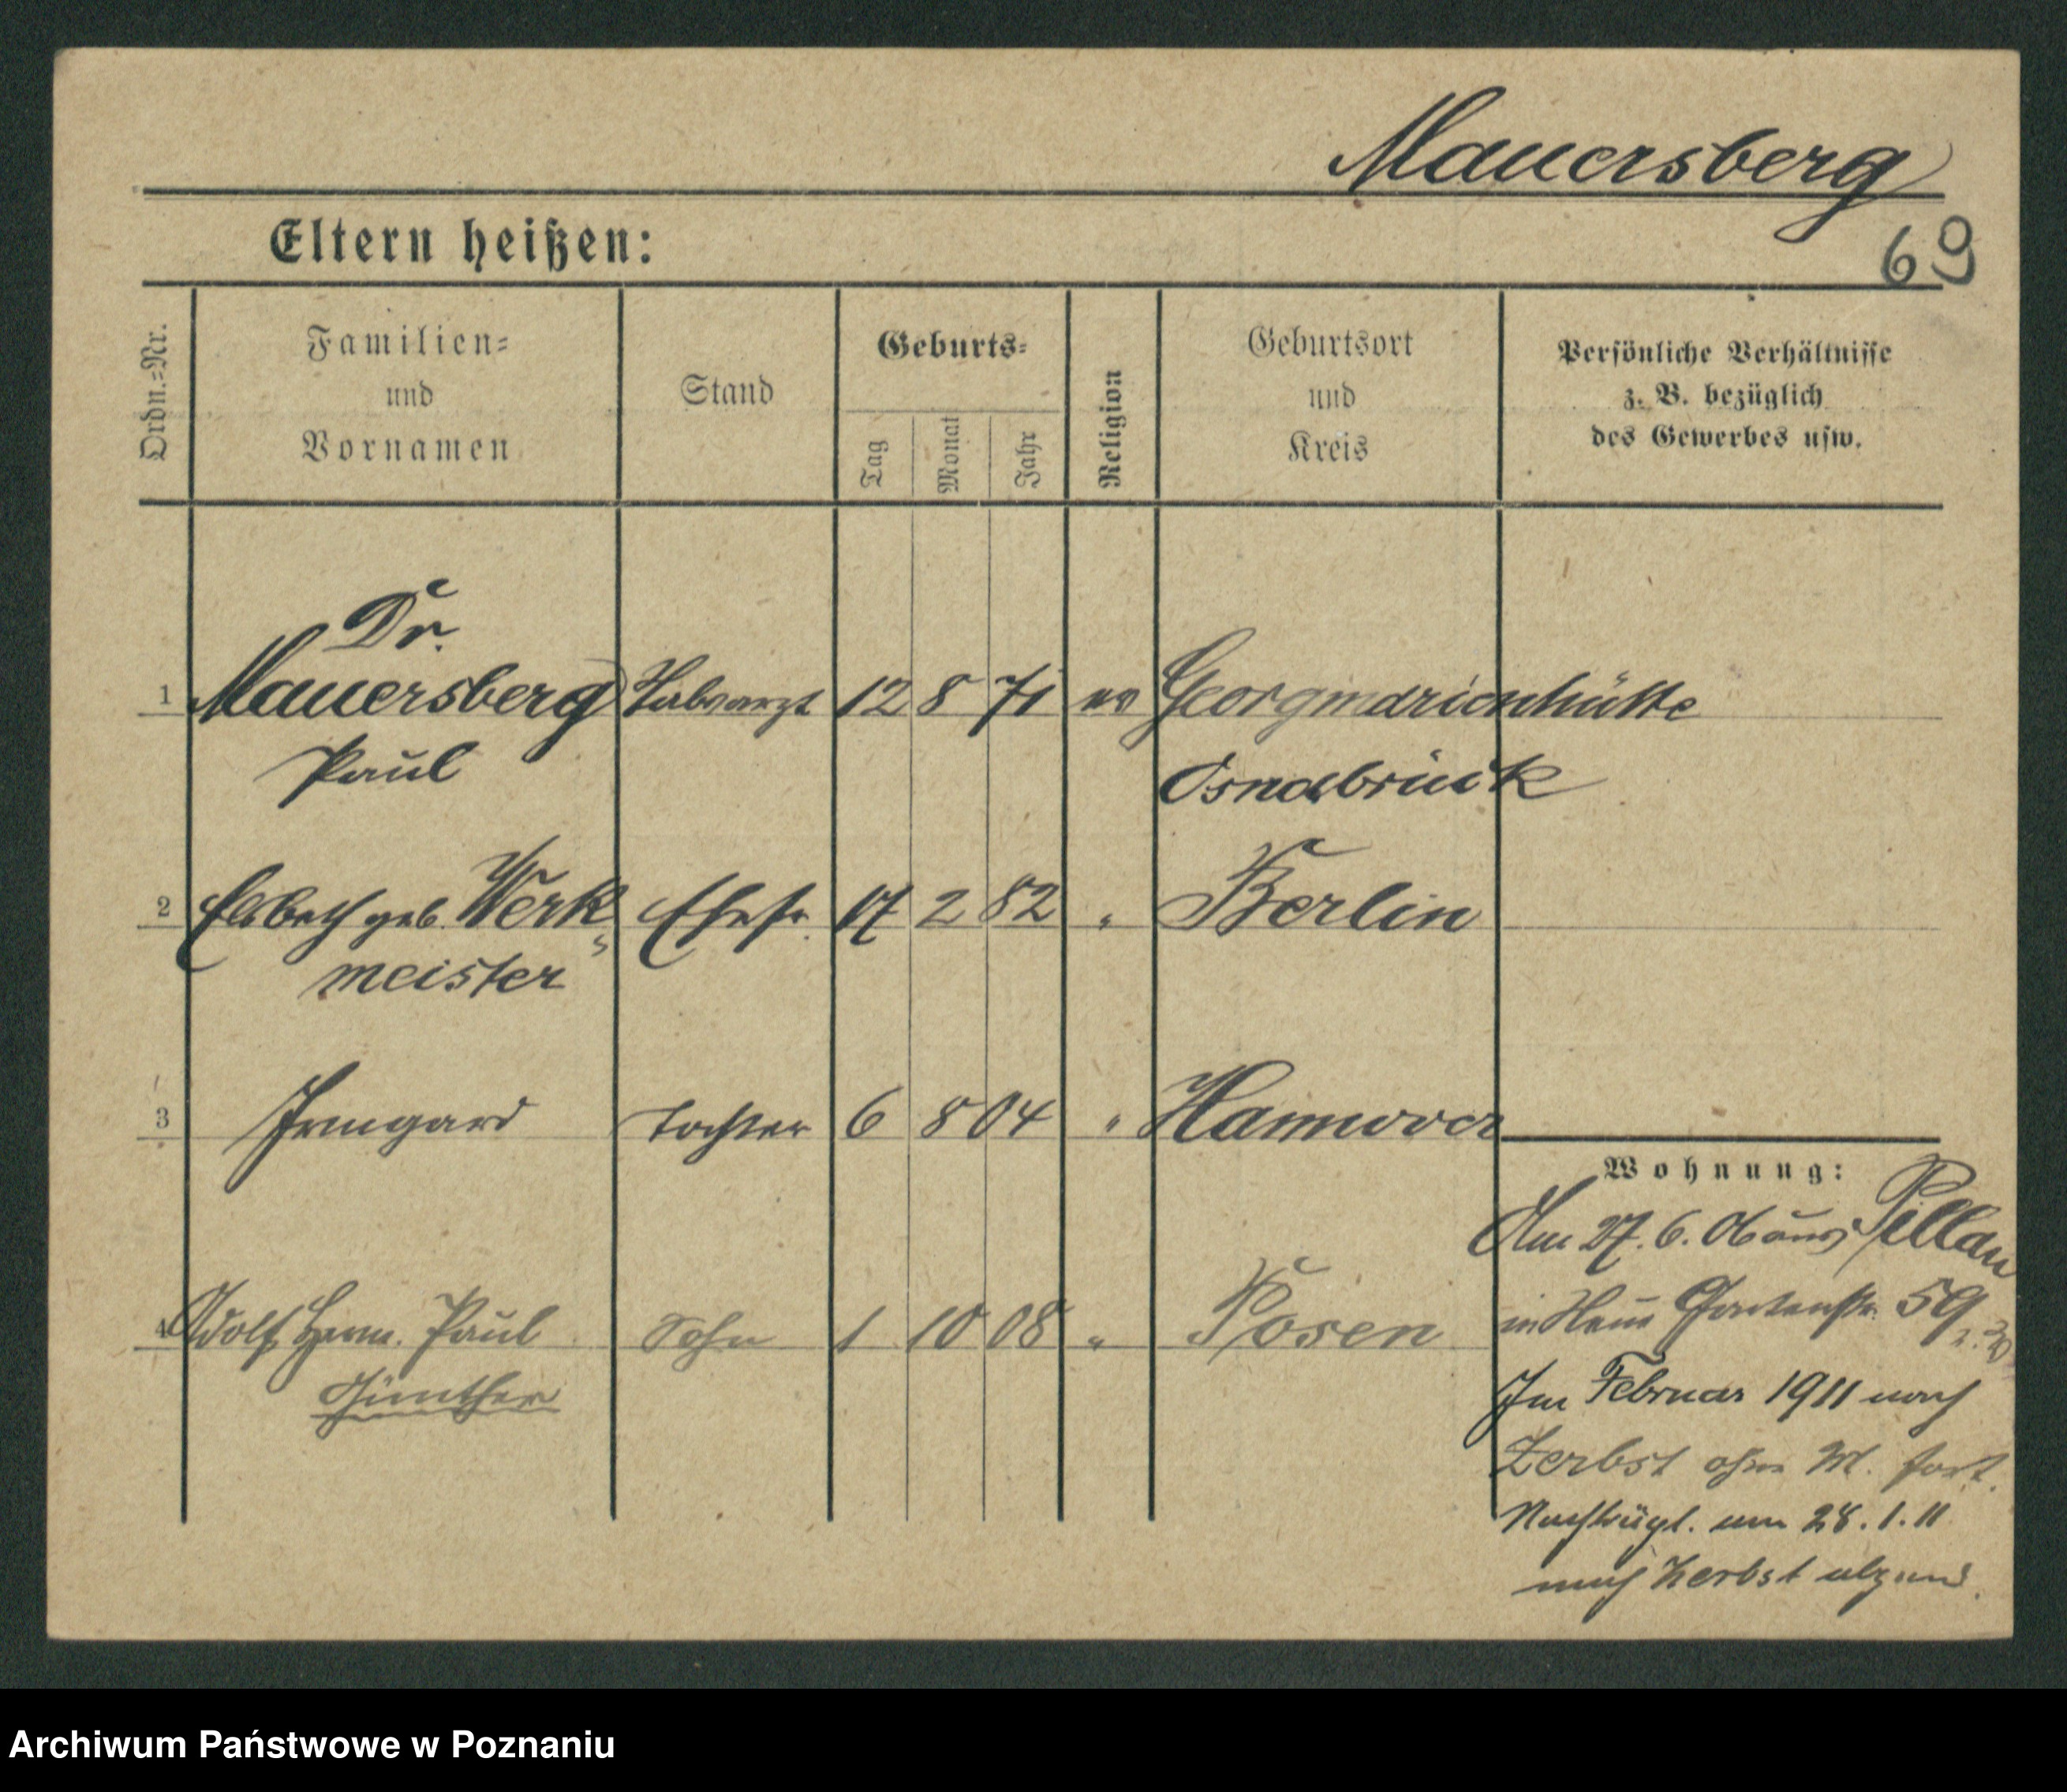 Mauersberg
Eltern heißen:
69
Ordn.=Nr.
Familien=
und
Vornamen
Stand
Geburts=
Tag
Monat
Jahr
Religion
Geburtsort
und
Kreis
Persönliche Verhältnisse
z. B. bezüglich
des Gewerbes usw.
Dr.
1 Mauersberg Stabsarzt 12 8 71 ev Georgmarienhütte
Paul Osnabrück
2 Elsbeth geb. Werk= Ehefr. 17 2 82 " Berlin
meister
3 Irmgard Tochter 6 8 04 " Hannover
Wohnung:
Am 27. 6. 06 aus Pillau
4 Adolf Herm. Paul Sohn 1 10 08 " Posen
in Neue Gartenstr. 59
Günther
Im Februar 1911 nach
Zerbst ohne M. fort.
Nachträgl. am 28. 1. 11
nach Zerbst abgem.
Archiwum Państwowe w Poznaniu